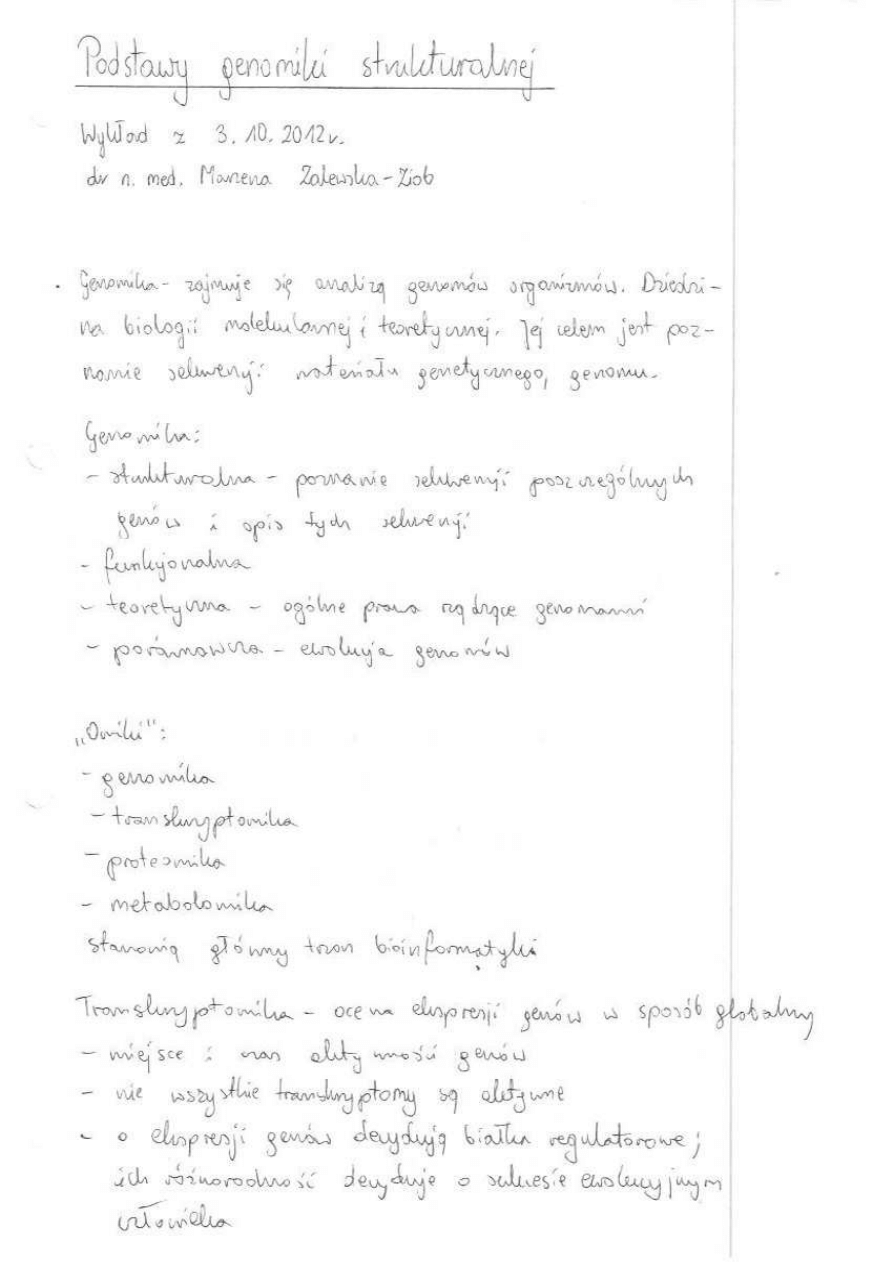 Podstawy genomiki strukturalnej
Wykład z 3.10.2012r.
dr n. med. Marzena Zalewska-Ziob
• Genomika - zajmuje się analizą genomów organizmów. Dziedzi-
na biologii molekularnej i teoretycznej. Jej celem jest poz-
nanie sekwencji materiału genetycznego, genomu.
Genomika:
- strukturalna - poznanie sekwencji poszczególnych
genów i opis tych sekwencji
- funkcjonalna
- teoretyczna - ogólne prawa rządzące genomami
- porównawcza - ewolucja genomów
„Omiki":
- genomika
- transkryptomika
- proteomika
- metabolomika
stanowią główny trzon bioinformatyki
Transkryptomika - ocena ekspresji genów w sposób globalny
- miejsce i czas aktywności genów
- nie wszystkie transkryptomy są aktywne
- o ekspresji genów decydują białka regulatorowe;
ich różnorodność decyduje o sukcesie ewolucyjnym
człowieka